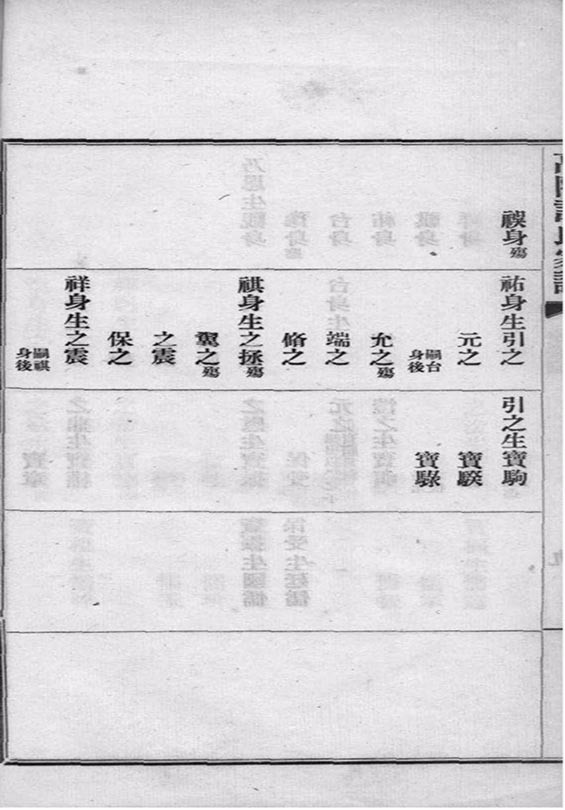 禖身殤
祐身生引之
元之
嗣台身後
允之殤
端之
脩之
祺身生之拯殤
翼之殤
之震
保之
祥身生之震
嗣祺身後
引之生寶駒
寶騤
寶騄